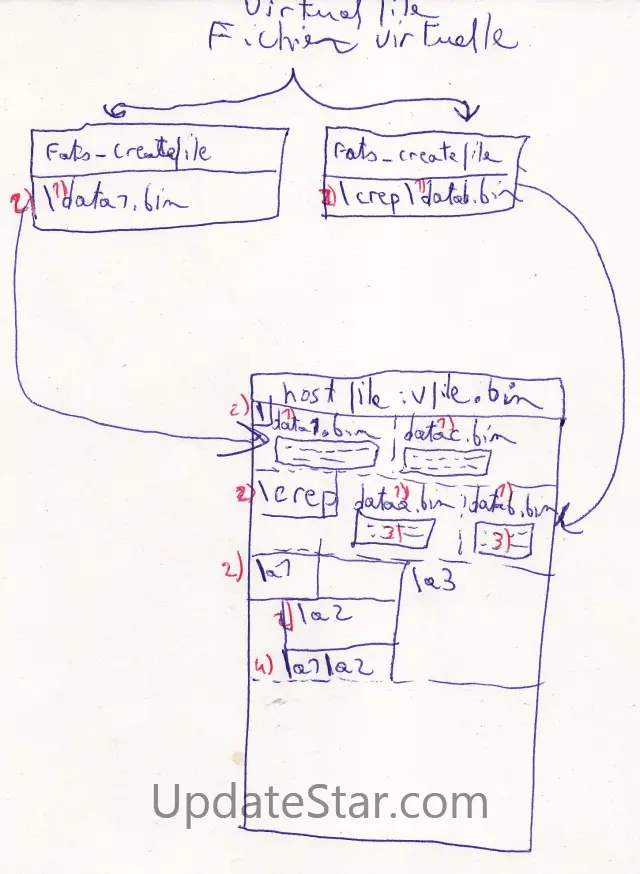 Virtual file
Fichier virtuelle
Fats-createfile
2) \ 1) data1.bin
Fats-createfile
2) \crep\ 1) datab.bin
host file : vfile.bin
2) \
1) data1.bin
1) datac.bin
2) \crep
1) dataa.bin
1) datab.bin
3)
3)
2) \a1
\a3
\a2
4) \a1\a2
UpdateStar.com